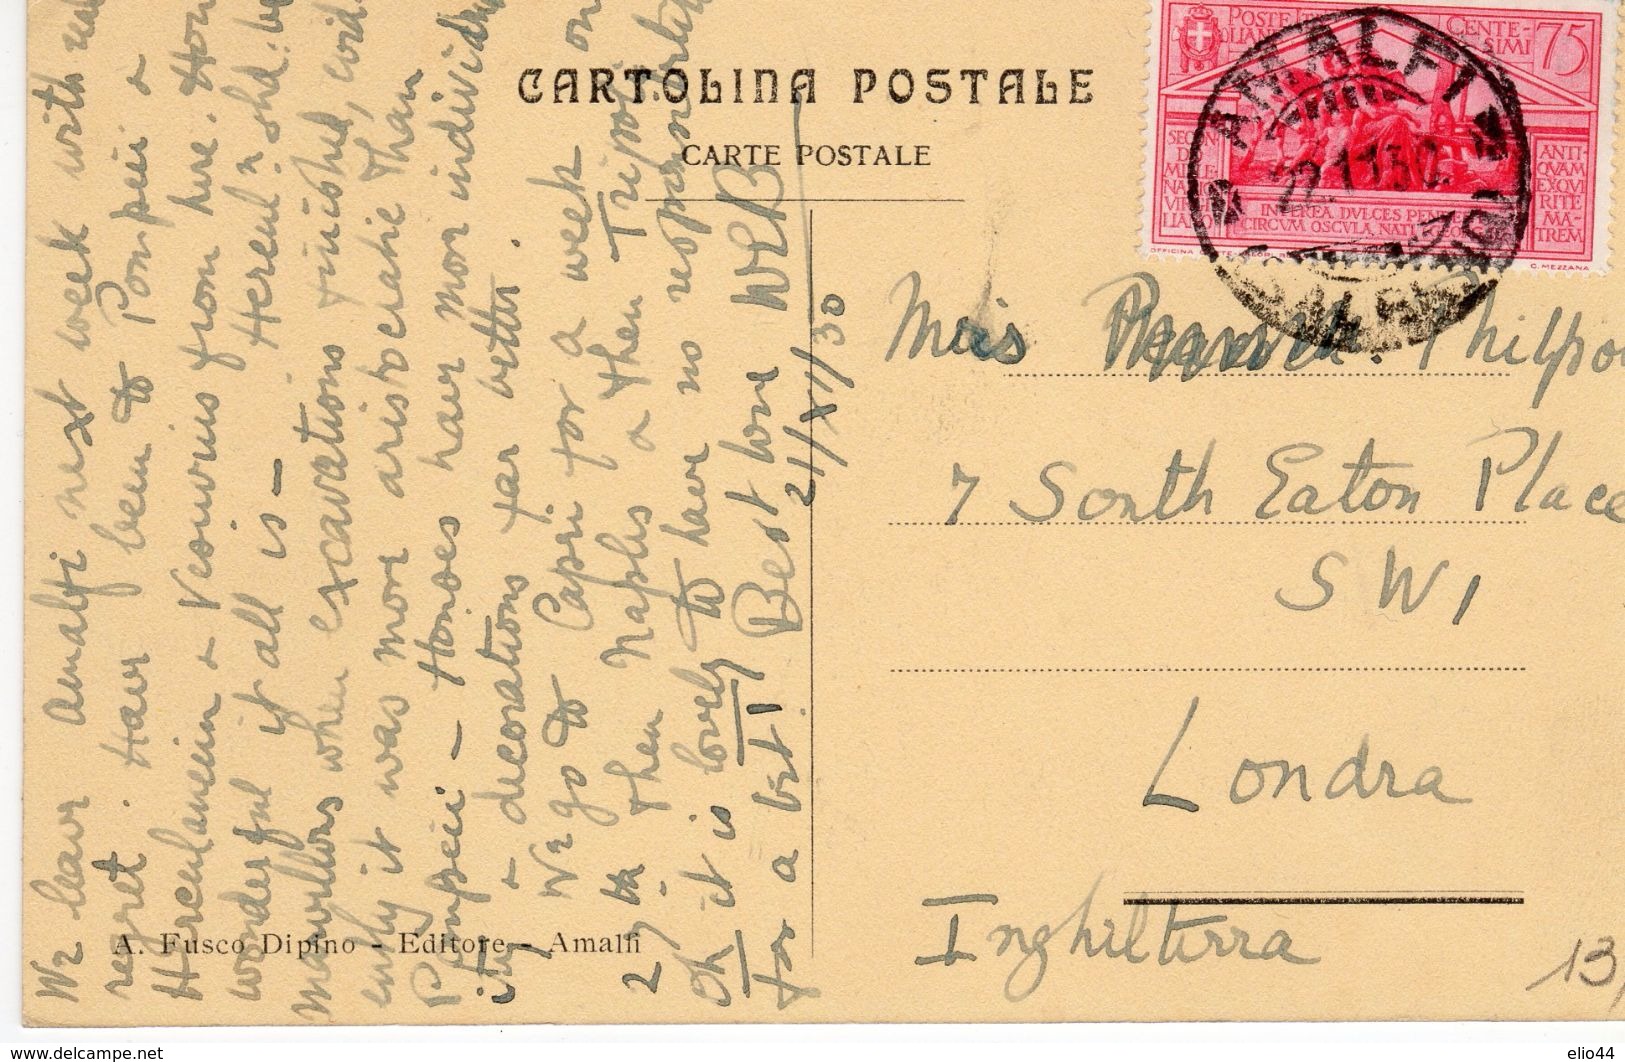 CARTOLINA POSTALE
CARTE POSTALE
POSTE ITALIANE
CENTESIMI 75
SECONDO MILLENARIO VIRGILIANO
INTEREA DVLCES PENDE
CIRCVM OSCVLA NATI GEOR
ANTIQVAM EXQVIRITE MATREM
C. MEZZANA
AMALFI
22.11.30.
We leave Amalfi next week with real
regret. Have been to Pompeii &
Herculaneum & Vesuvius from here. How
wonderful it all is - Hercul^m shd: be
marvellous when excavations finished, evid-
ently it was more aristocratic than
Pompeii - Houses have more individual-
ity & decorations far better.
We go to Capri for a week on
27th then Naples & then Tripoli
Oh it is lovely to have no responsibilit
for a bit! Best love WEB
21/XI/30
Miss Philpo
7 South Eaton Place
SW1
Londra
Inghilterra
A. Fusco Dipino - Editore - Amalfi
13
elio44